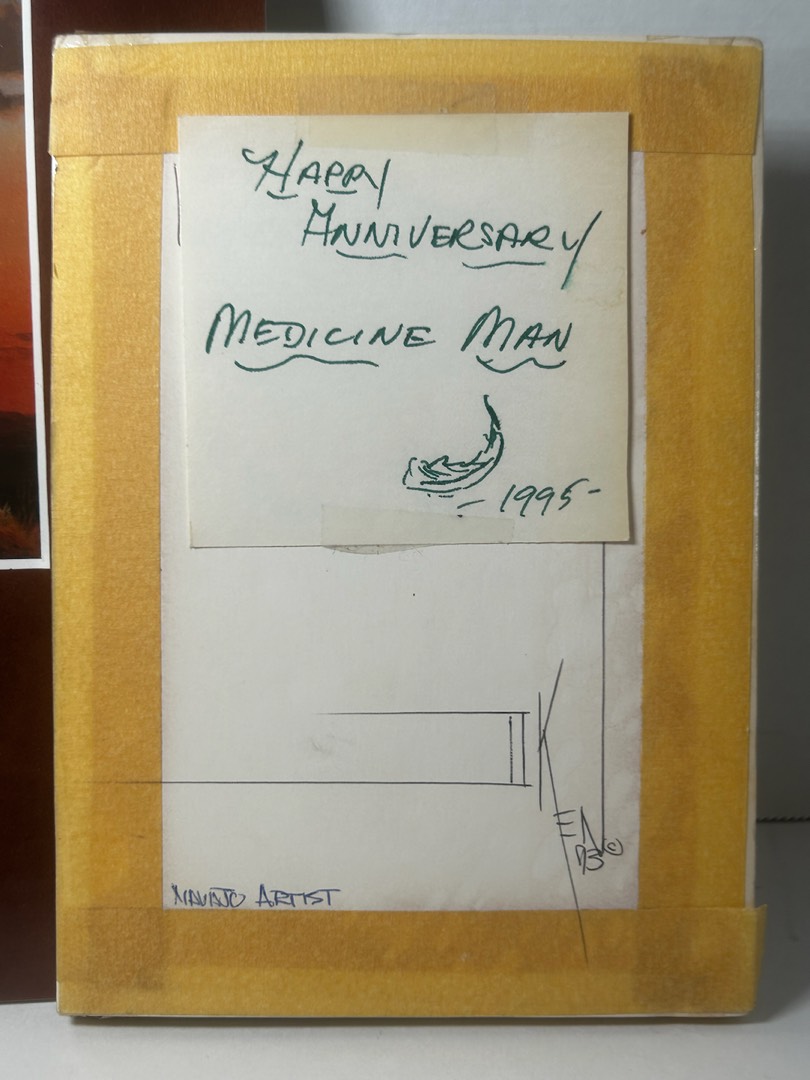 HAPPY
ANNIVERSARY
MEDICINE MAN
- 1995 -
NAVAJO ARTIST